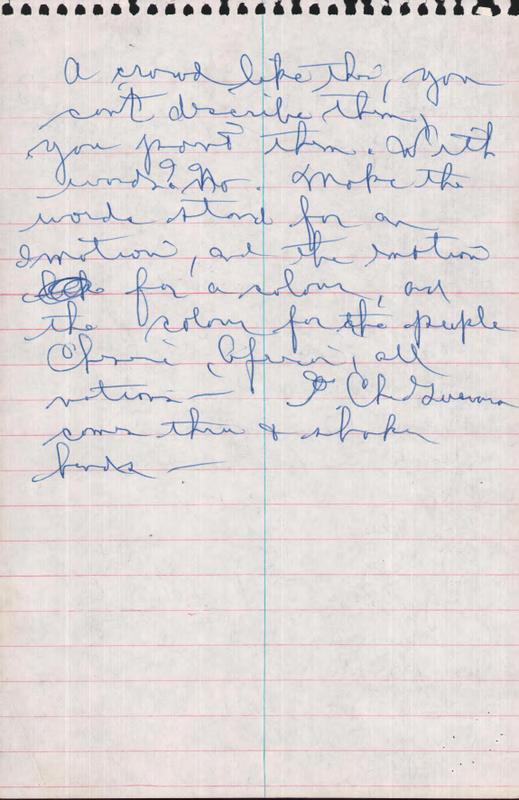 A crowd like this, you
can't describe them,
you paint them. With
words? No. Make the
words stand for an
emotion, and the emotion
for a colour, and
the colour for the people
Chinese, African, all
nations — Che Guevara
comes thru & shakes
hands —